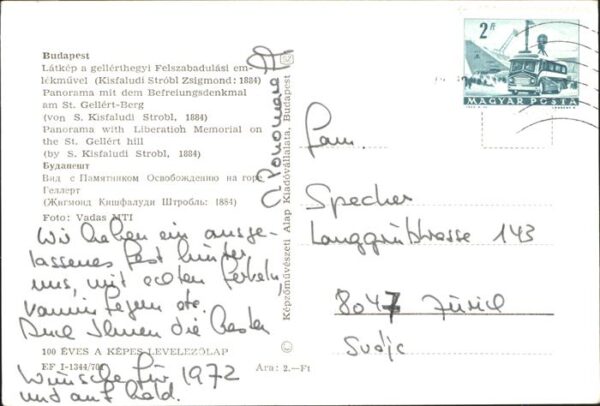 Budapest
Látkép a gellérthegyi Felszabadulási em-
lékművel (Kisfaludi Stróbl Zsigmond: 1884)
Panorama mit dem Befreiungsdenkmal
am St. Gellért-Berg
(von S. Kisfaludi Strobl, 1884)
Panorama with Liberation Memorial on
the St. Gellért hill
(by S. Kisfaludi Strobl, 1884)
Будапешт
Вид с Памятником Освобождению на горе
Геллерт
(Жигмонд Кишфалуди Штробль: 1884)
Foto: Vadas MTI
Wir haben ein ausge-
lassenes Fest hinter
uns, mit echten Ferkeln,
etc.
Und Ihnen die besten
100 ÉVES A KÉPES LEVELEZŐLAP
EF I-1344/701
Ára: 2.—Ft
Wünsche für 1972
und auf bald.
Képzőművészeti Alap Kiadóvállalata, Budapest
2 Ft
MAGYAR POSTA
Fam.
Specker
Langgrütstrasse 143
8047 Zürich
Svájc